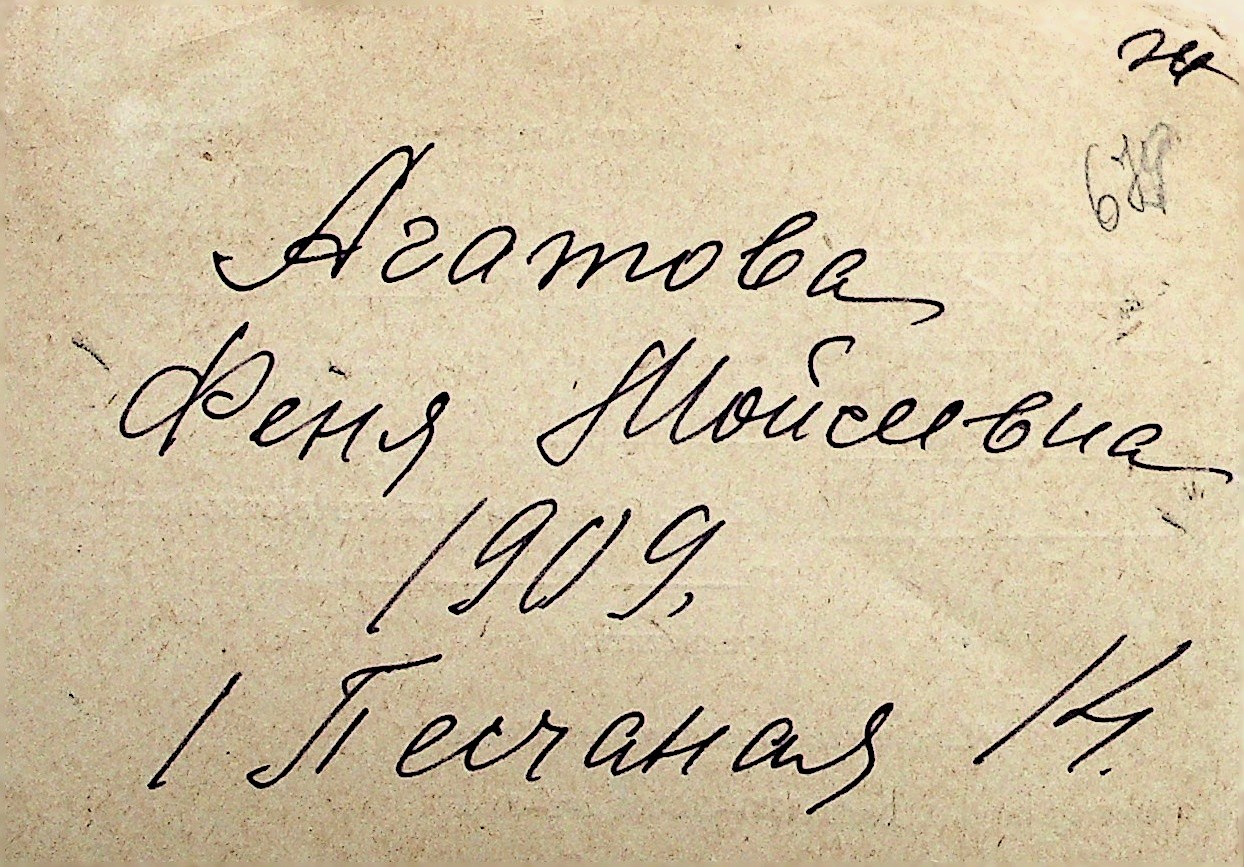 Агатова
Феня Мойсеевна
1909.
1 Песчаная 14.